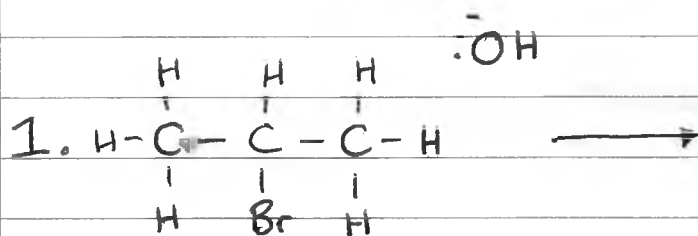 ⁻:OH
H H H
1. H-C-C-C-H →
H Br H